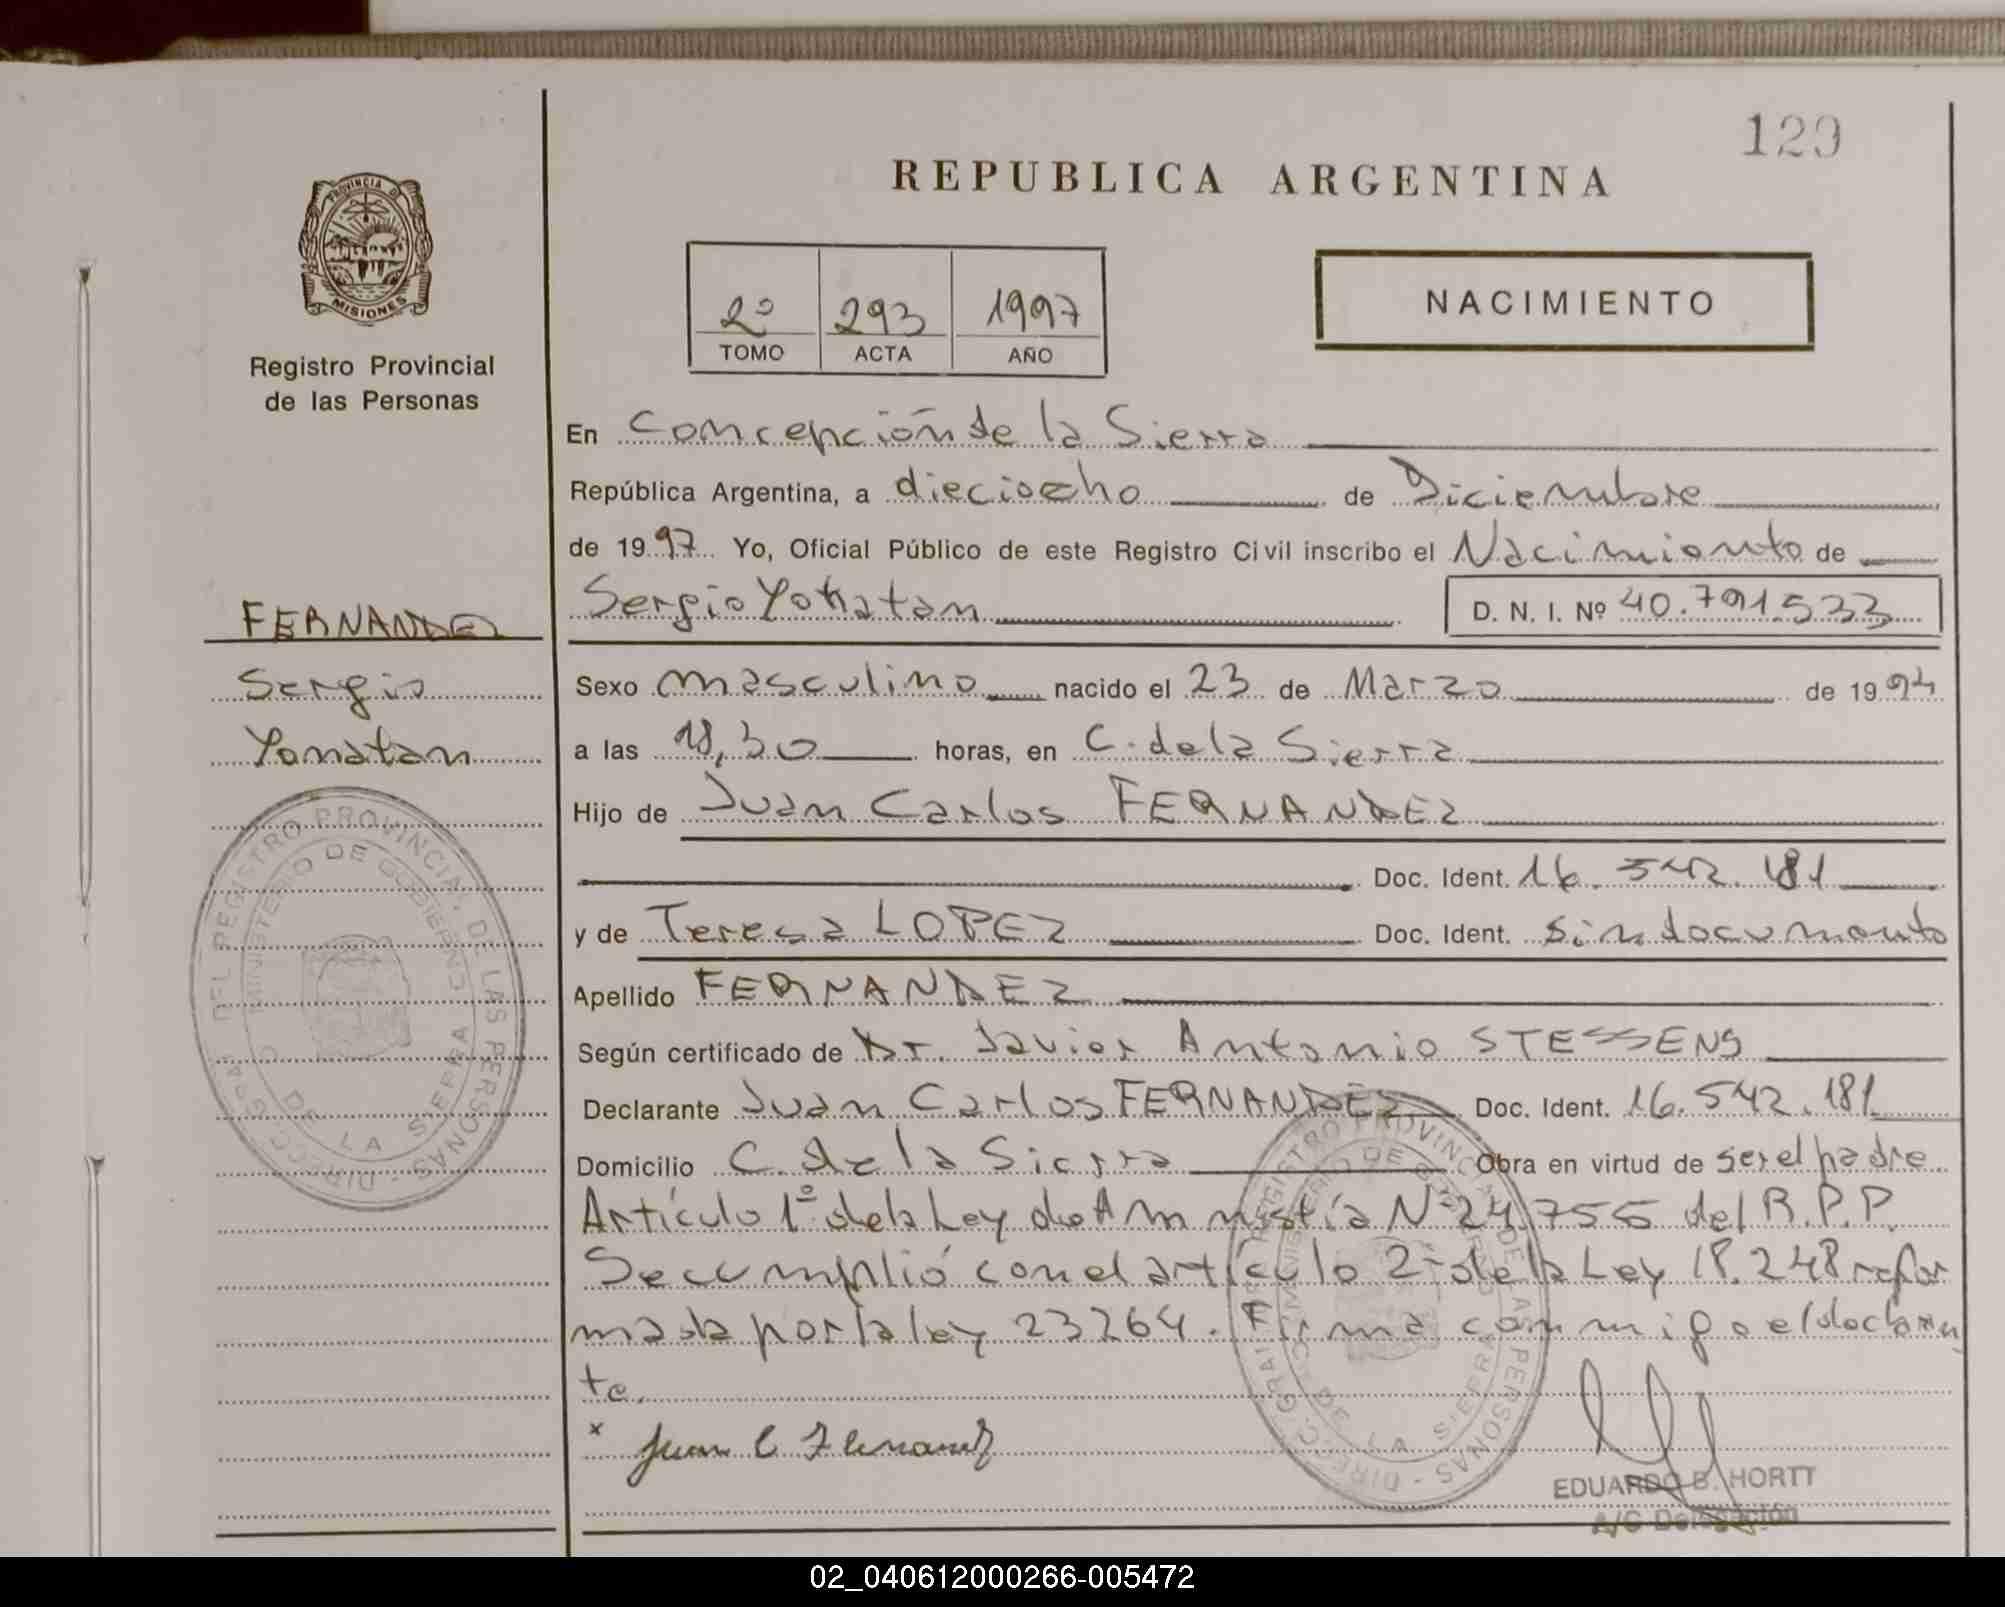 129
REPUBLICA ARGENTINA
PROVINCIA DE
MISIONES
Registro Provincial
de las Personas
2º 293 1997
TOMO ACTA AÑO
NACIMIENTO
En Concepción de la Sierra
República Argentina, a dieciocho de Diciembre
de 1997 Yo, Oficial Público de este Registro Civil inscribo el Nacimiento de
Sergio Yonatan D. N. I. Nº 40.791.533
FERNANDEZ
Sergio
Yonatan
Sexo masculino nacido el 23 de Marzo de 1994
a las 18,30 horas, en C. de la Sierra
Hijo de Juan Carlos FERNANDEZ
Doc. Ident. 16.542.181
y de Teresa LOPEZ Doc. Ident. sin documento
Apellido FERNANDEZ
Según certificado de Dr. Javier Antonio STESSENS
Declarante Juan Carlos FERNANDEZ Doc. Ident. 16.542.181
Domicilio C. de la Sierra Obra en virtud de ser el padre
Artículo 1º de la Ley de Amnistía Nº 24.755 del R.P.P.
Se cumplió con el artículo 2º de la Ley 18.248 refor
mada por la ley 23264. Firma conmigo el declaran
te.
x Juan C Fernandez
EDUARDO B. HORTT
A/C Delegación
DIRECC. GRAL. DEL REGISTRO PROVINCIAL DE LAS PERSONAS
MINISTERIO DE GOBIERNO
DE LA SIERRA
DIRECC. GRAL. DEL REGISTRO PROVINCIAL DE LAS PERSONAS
MINISTERIO DE GOBIERNO
DE LA SIERRA
02_040612000266-005472